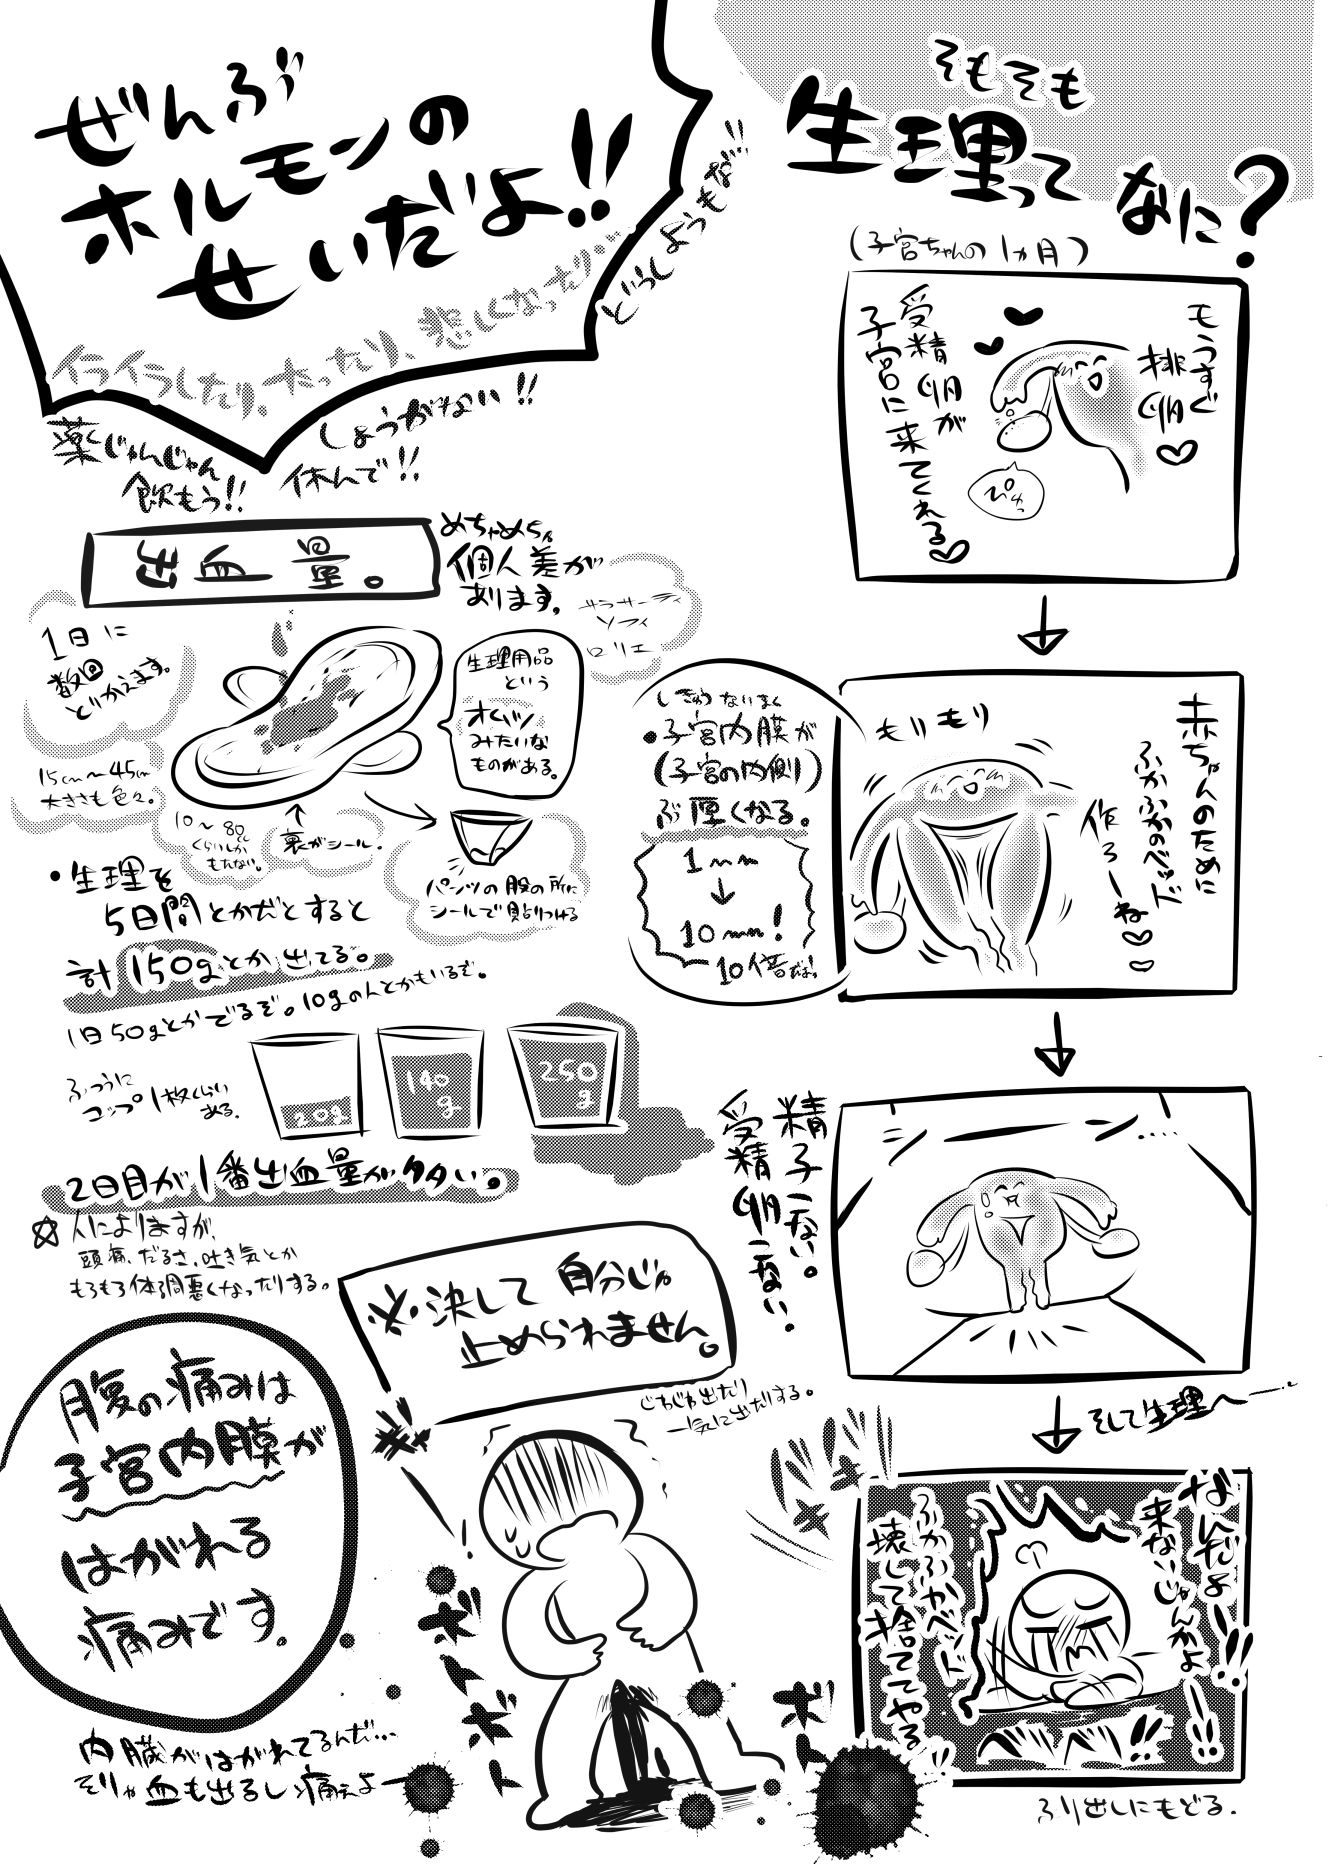 そもそも
生理って
なに?
(子宮ちゃんの1ヵ月)
もうすぐ
排卵♡
受精卵が
子宮に来てくれる♡
ぴゅっ
赤ちゃんのために
ふかふかのベッド
作ろーね♡
♡
もりもり
しきゅうないまく
•子宮内膜が
(子宮の内側)
ぶ厚くなる。
1mm
↓
10mm!
10倍だよ
シーン....
精子こない。
受精卵こない.
そして生理へ
なんだよー!!
来ないじゃんかよ
ー!!
ふかふかベッド
壊して捨ててやる
バキバキ
ベリベリ!!
ふり出しにもどる.
ぜんぶ
ホルモンの
せいだよ!!
イライラしたり、太ったり、悲しくなったり…
どうしようもな!!
しょうがない!!
休んで!!
薬じゃんじゃん
飲もう!!
出血量。
めちゃめちゃ
個人差が
あります。
サラサーティ
ソフィ
ロリエ
1日に
数回
とりかえます。
生理用品
という
オムツ
みたいな
ものがある。
15cm〜45cm
大きさも色々。
10〜80cc
くらいしか
もたない。
↑
裏がシール.
パンツの股の所に
シールで貼りつける
•生理を
5日間とかだとすると
計150gとか出てる。
1日50gとかでるぞ。10gの人とかもいるぞ。
ふつうに
コップ1杯くらい
ある.
20g
140
g
250
g
2日目が1番出血量が多い。
☆人によりますが、
頭痛、だるさ、吐き気とか
もろもろ体調悪くなったりする。
※決して自分じゃ
止められません。
じわじわ出たり
一気に出たりする。
腹の痛みは
子宮内膜が
はがれる
痛みです.
内臓がはがれてるんだ…
そりゃ血も出るし痛ぇよ
ぎゃー!
ボトボト
ボト